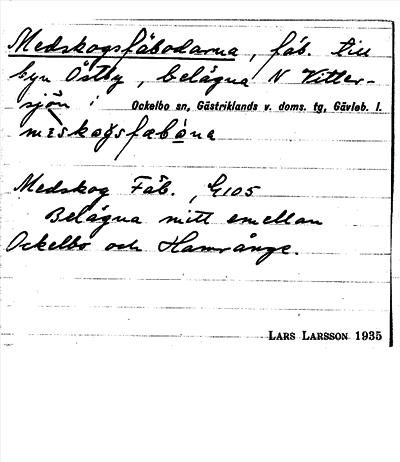 Medskogsfäbodarna, fäb. till
byn Östby, belägna N Vitter-
sjön i Ockelbo sn, Gästriklands v. doms. tg, Gävleb. l.
Medskog Fäb., G105
Belägna mitt emellan
Ockelbo och Hamrånge.
LARS LARSSON 1935